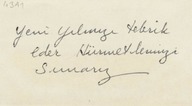 4311
Yeni yılınızı tebrik
eder Hürmetlerimizi
Sunarız